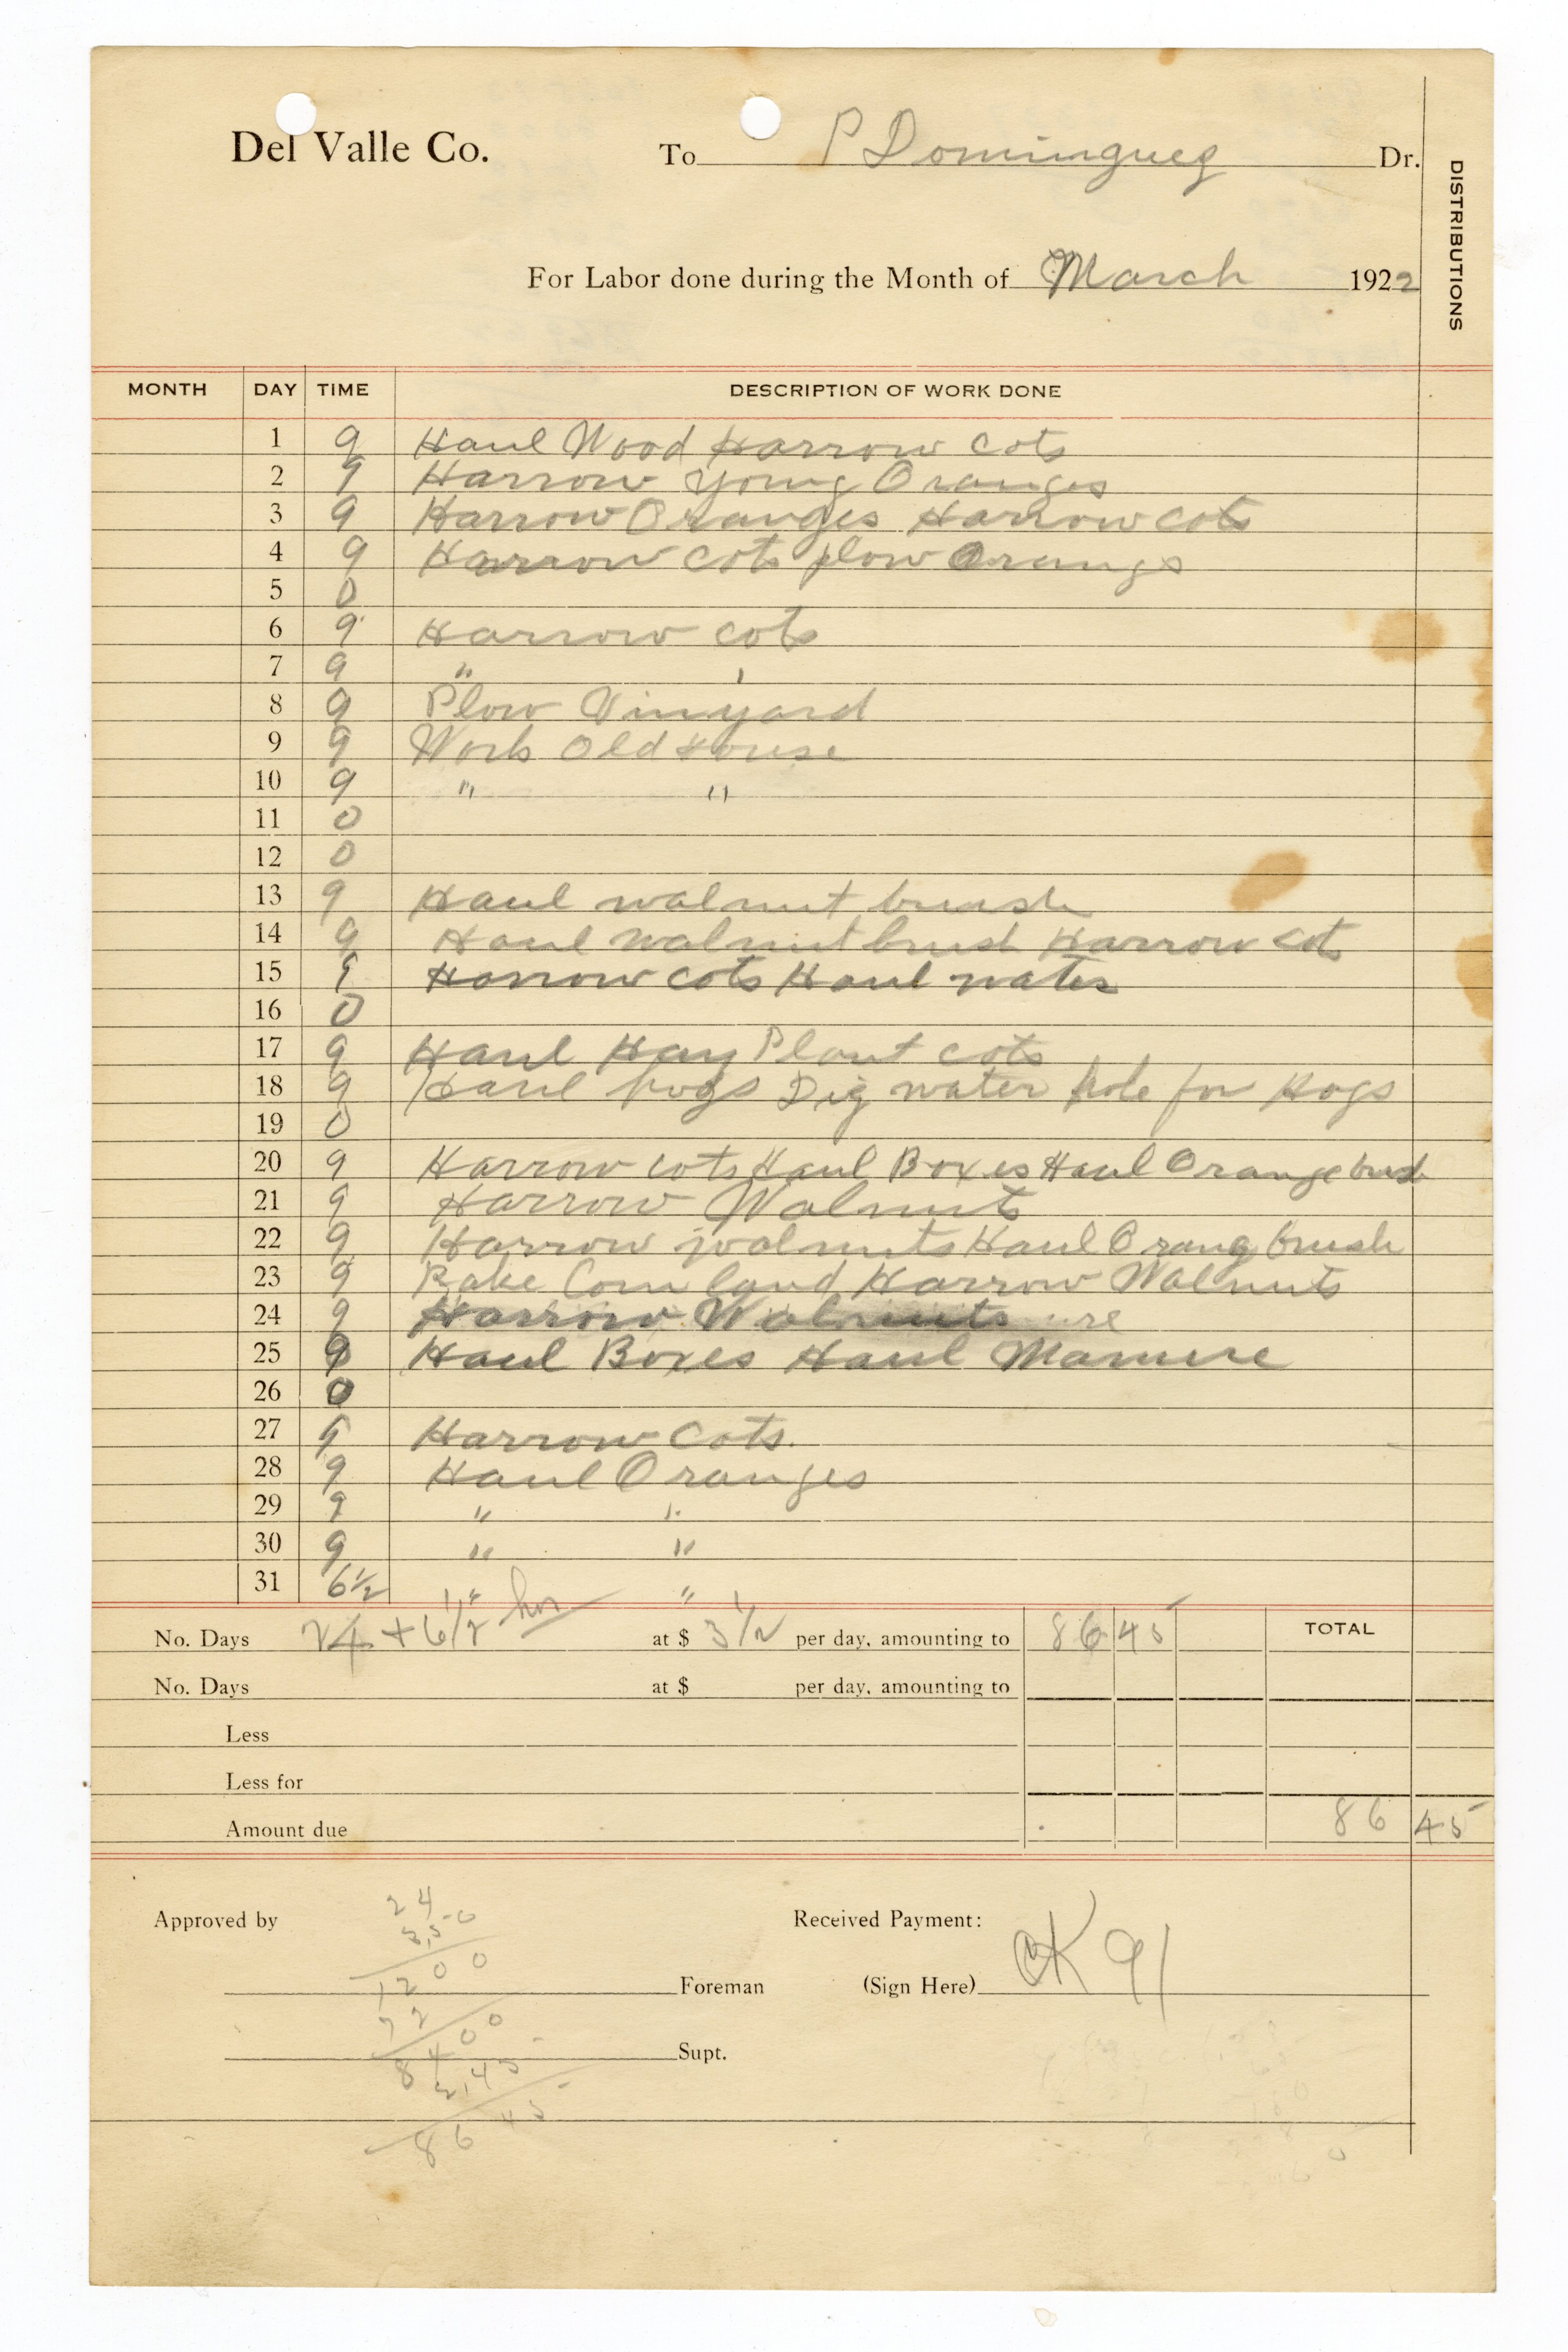 Del Valle Co. To P Dominguez Dr.
DISTRIBUTIONS
For Labor done during the Month of March 1922
MONTH DAY TIME DESCRIPTION OF WORK DONE
1 9 Haul Wood Harrow cots
2 9 Harrow young Oranges
3 9 Harrow Oranges Harrow cots
4 9 Harrow cots plow Orangs
5 0
6 9 Harrow cots
7 9 " "
8 9 Plow Vinyard
9 9 Work Old House
10 9 " "
11 0
12 0
13 9 Haul walnut brush
14 9 Haul walnut brush Harrow cots
15 9 Harrow cots Haul water
16 0
17 9 Haul Hay Plant cots
18 9 Haul hogs Dig water hole for Hogs
19 0
20 9 Harrow cots Haul Boxes Haul Orange brush
21 9 Harrow Walnuts
22 9 Harrow walnuts Haul Orang brush
23 9 Rake Corn land Harrow Walnuts
24 9 Harrow Walnuts
25 9 Haul Boxes Haul Manure
26 0
27 9 Harrow Cots.
28 9 Haul Oranges
29 9 " "
30 9 " "
31 6½ " "
No. Days 24 + 6 1/2 hrs at $ 3 1/2 per day, amounting to 86 45 TOTAL
No. Days at $ per day, amounting to
Less
Less for
Amount due 86 45
24
Approved by Received Payment:
3.50
1200
Foreman (Sign Here) CK 91
72
8400
Supt.
2.45
86 45